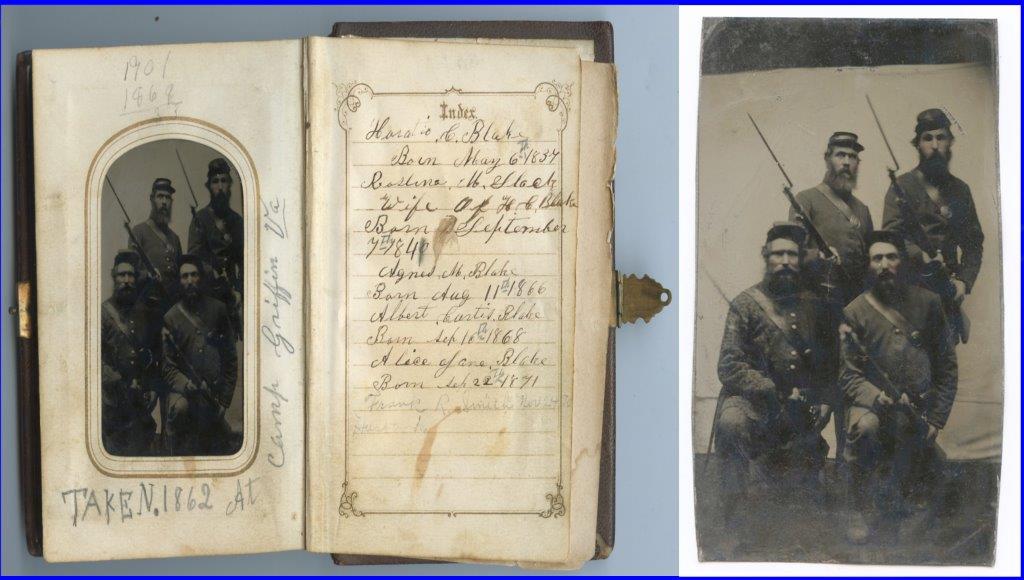 1901
1868
TAKEN. 1862 At
Camp Griffin Va
Index
Horatio C. Blake
Born May 6th 1837
Rostina M. Slack
Wife of H. C. Blake
Born September
7th 184
Agnes M. Blake
Born Aug 11th 1866
Albert Curtis Blake
Born Sep 16th 1868
Alice Jane Blake
Born Sep 22th 1871
Frank R. Smith Nov